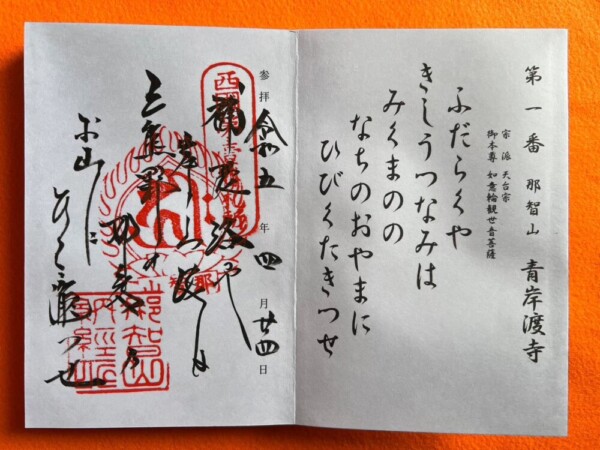 第一番 那智山 青岸渡寺
宗派 天台宗
御本尊 如意輪観世音菩薩
ふだらくや
きしうつなみは
みくまのの
なちのおやまに
ひびくたきつせ
参拝 令和五年四月廿四日
岸打つ波は
三熊野の那智の
那智山
納経所